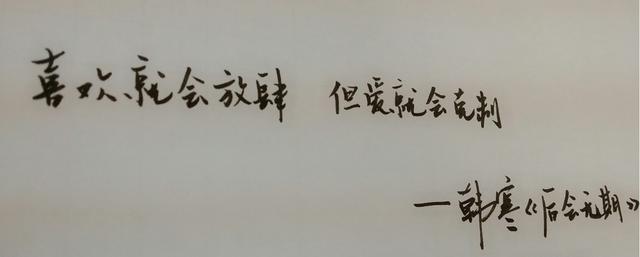 喜欢就会放肆 但爱就会克制
—韩寒《后会无期》